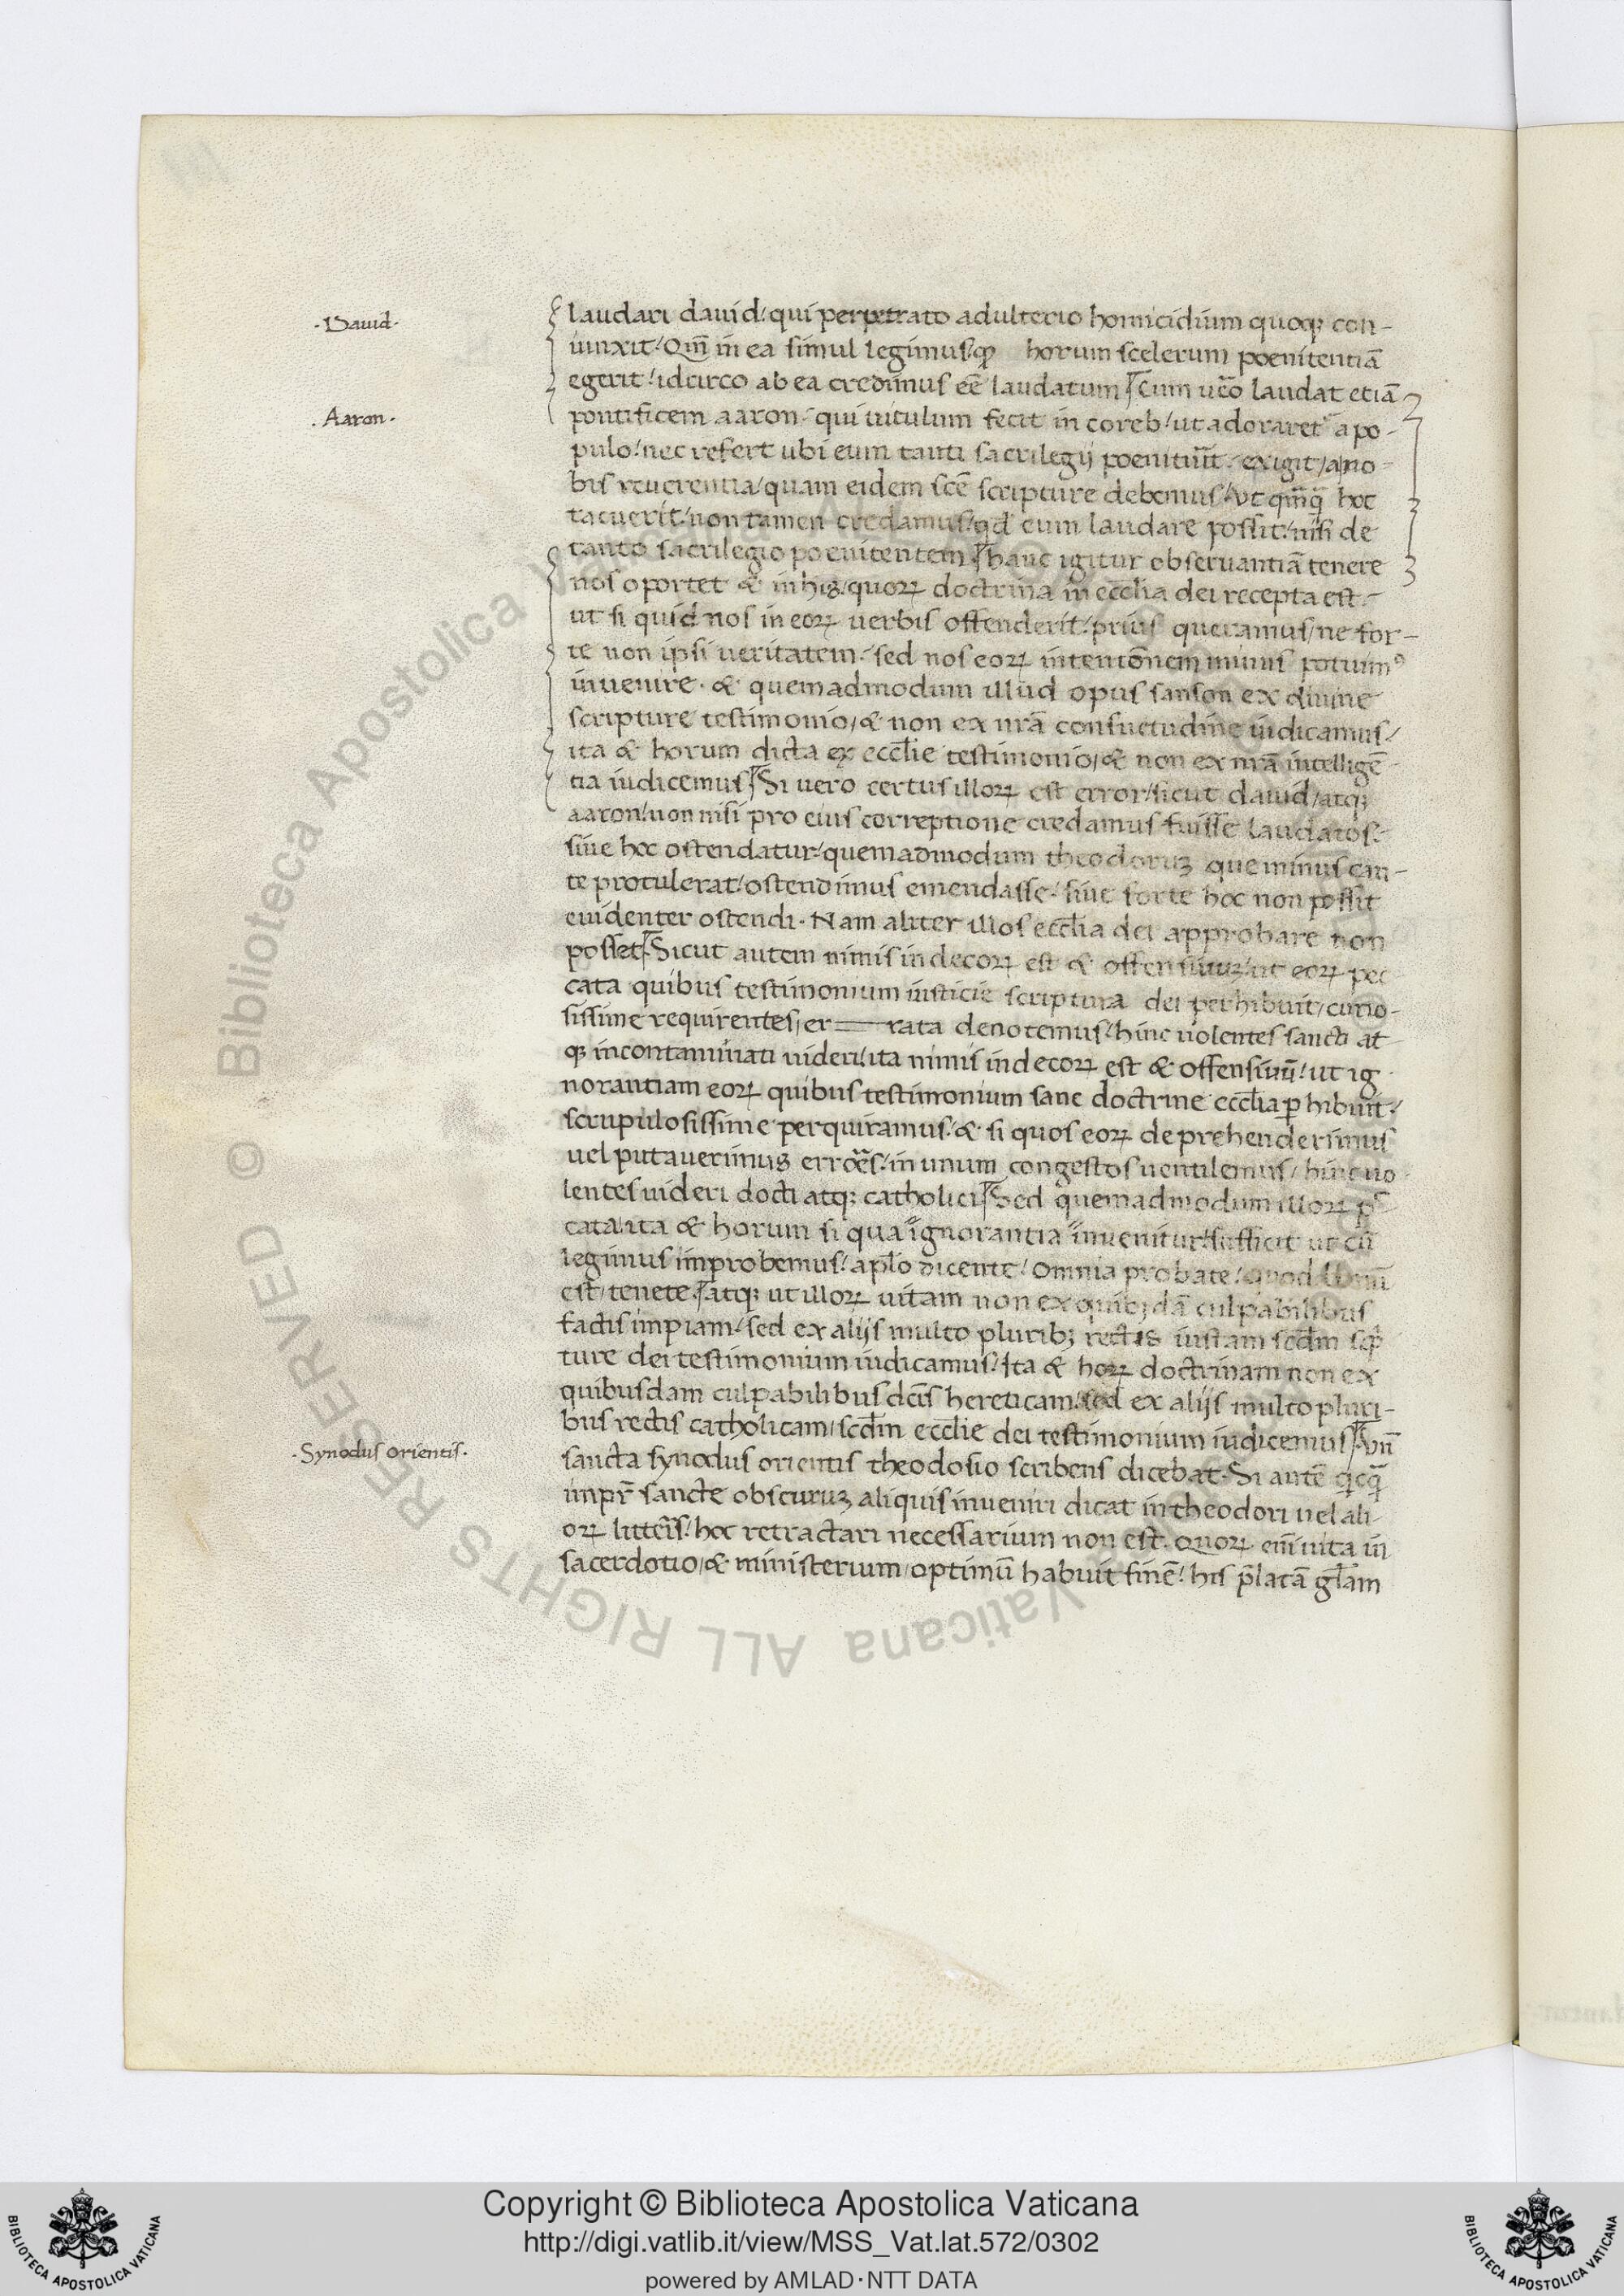 ·David·
laudari david/ qui perpetrato adulterio homicidium quoqꝫ con-
iunxit/ Qm̄ in ea simul legimus/ ꝙ horum scelerum poenitentiā
egerit/ idcirco ab ea credimus eē laudatum Cum uēo laudat etiā
·Aaron·
pontificem aaron· qui uitulum fecit in coreb/ ut adoraret᷑ a po-
pulo/ nec refert ubi eum tanti sacrilegij poenituit· exigit/ a no-
bis reuerentia/ quam eidem scē scripture debemus/ Vt qm̄qꝫ hoc
tacuerit/ non tamen credamus/ qd̄ eum laudare possit/ nisi de
tanto sacrilegio poenitentem hanc igitur obseruantiā tenere
nos oportet & in his/ quoꝝ doctrina in eccl̄ia dei recepta est·
ut si quid nos in eoꝝ uerbis offenderit/ prius queramus/ ne for-
te non ipsi ueritatem· sed nos eoꝝ intentōnem minus potuimꝰ
inuenire· & quemadmodum illud opus sanson ex diuine
scripture testimonio/ & non ex nrā consuetudine iudicamus/
ita & horum dicta ex eccl̄ie testimonio/ & non ex nrā intelligē-
tia iudicemus Si uero certus illoꝝ est error/ sicut dauid/ atqꝫ
aaron/ non nisi pro eius correptione credamus fuisse laudatos·
siue hoc ostendatur/ quemadmodum theodoruꝫ que minus cau-
te protulerat/ ostendimus emendasse/ siue forte hoc non possit
euidenter ostendi· Nam aliter illos eccl̄ia dei approbare non
posset Sicut autem nimis indecoꝝ est & offensiuuꝫ/ ut eoꝝ pec
cata quibus testimonium iusticie scriptura dei perhibuit/ curio-
sissime requirentes/ er——rata denotemus/ hinc uolentes sancti at
qꝫ incontaminati uideri/ ita nimis indecoꝝ est & offensiuū/ ut ig-
norantiam eoꝝ quibus testimonium sane doctrine eccl̄ia ꝑhibuit/
scrupulosissime perquiramus/ & si quos eoꝝ deprehenderimus
uel putauerimus errōes/ in unum congestos uentilemus/ hinc uo-
lentes uideri docti atqꝫ catholici Sed quemadmodum illoꝝ pc̄-
cata/ ita & horum si qua ignorantia inuenitur/ sufficit ut cū
legimus improbemus/ apl̄o dicente/ Omnia probate/ quod bonū
est/ tenete atqꝫ ut illoꝝ uitam non ex quibꝫdā culpabilibus
factis impiam/ sed ex alijs multo pluribꝫ rectis iustam scd̄m scͥp
ture dei testimonium iudicamus/ Ita & hoꝝ doctrinam non ex
quibusdam culpabilibus dc̄is hereticam/ sed ex alijs multo pluri-
bus rectis catholicam/ scd̄m eccl̄ie dei testimonium iudicemus Vn̄
·Synodus orientis·
sancta synodus orientis theodosio scribens dicebat· Si autē qͥcꝗ̄
impr̄ sancte obscuruꝫ aliquis inueniri dicat in theodori uel ali-
oꝝ litter̄is/ hoc retractari necessarium non est· Quoꝝ eni̅ uita in
sacerdotio/ & ministerium/ optimū habuit finē/ his p̄latā gl̄am
Copyright © Biblioteca Apostolica Vaticana
http://digi.vatlib.it/view/MSS_Vat.lat.572/0302
powered by AMLAD·NTT DATA
BIBLIOTECA APOSTOLICA VATICANA
BIBLIOTECA APOSTOLICA VATICANA